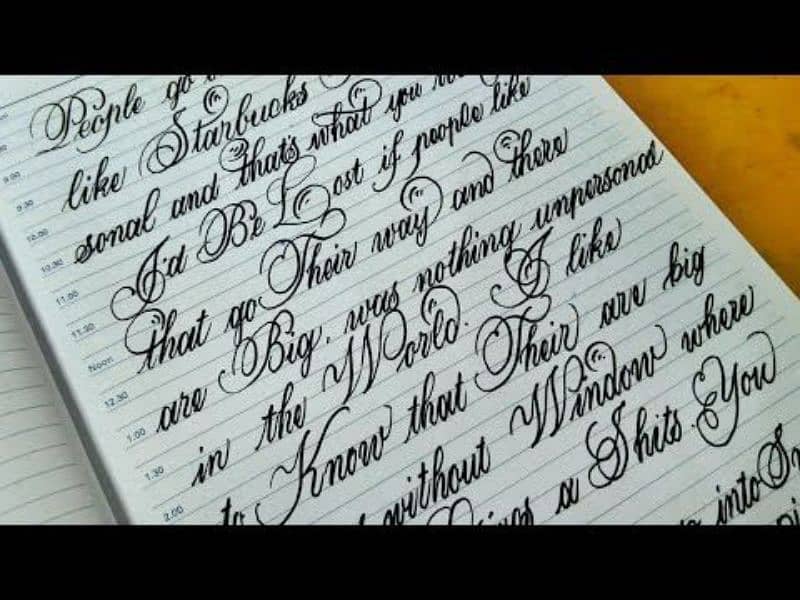 People go
like Starbucks
sonal and that's what you
I'd Be Lost if people like
that go Their way and there
are Big. was nothing unpersonal
in the World. I like
to Know that Their are big
without Window where
a Shits. You
into
9.00
10.00
10.30
11.00
11.30
Noon
12.30
1.00
1.30
2.00